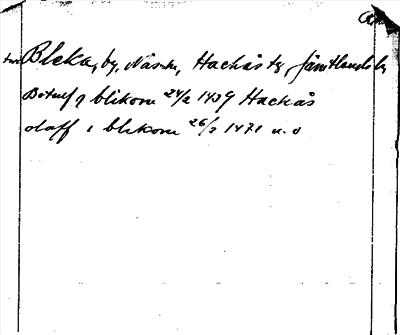 Bleka, by, Näs sn, Hackås tg, Jämtlands l.
Botulf j blikom 24/2 1439 Hackås
olaff i blekom 26/2 1471 n. ö